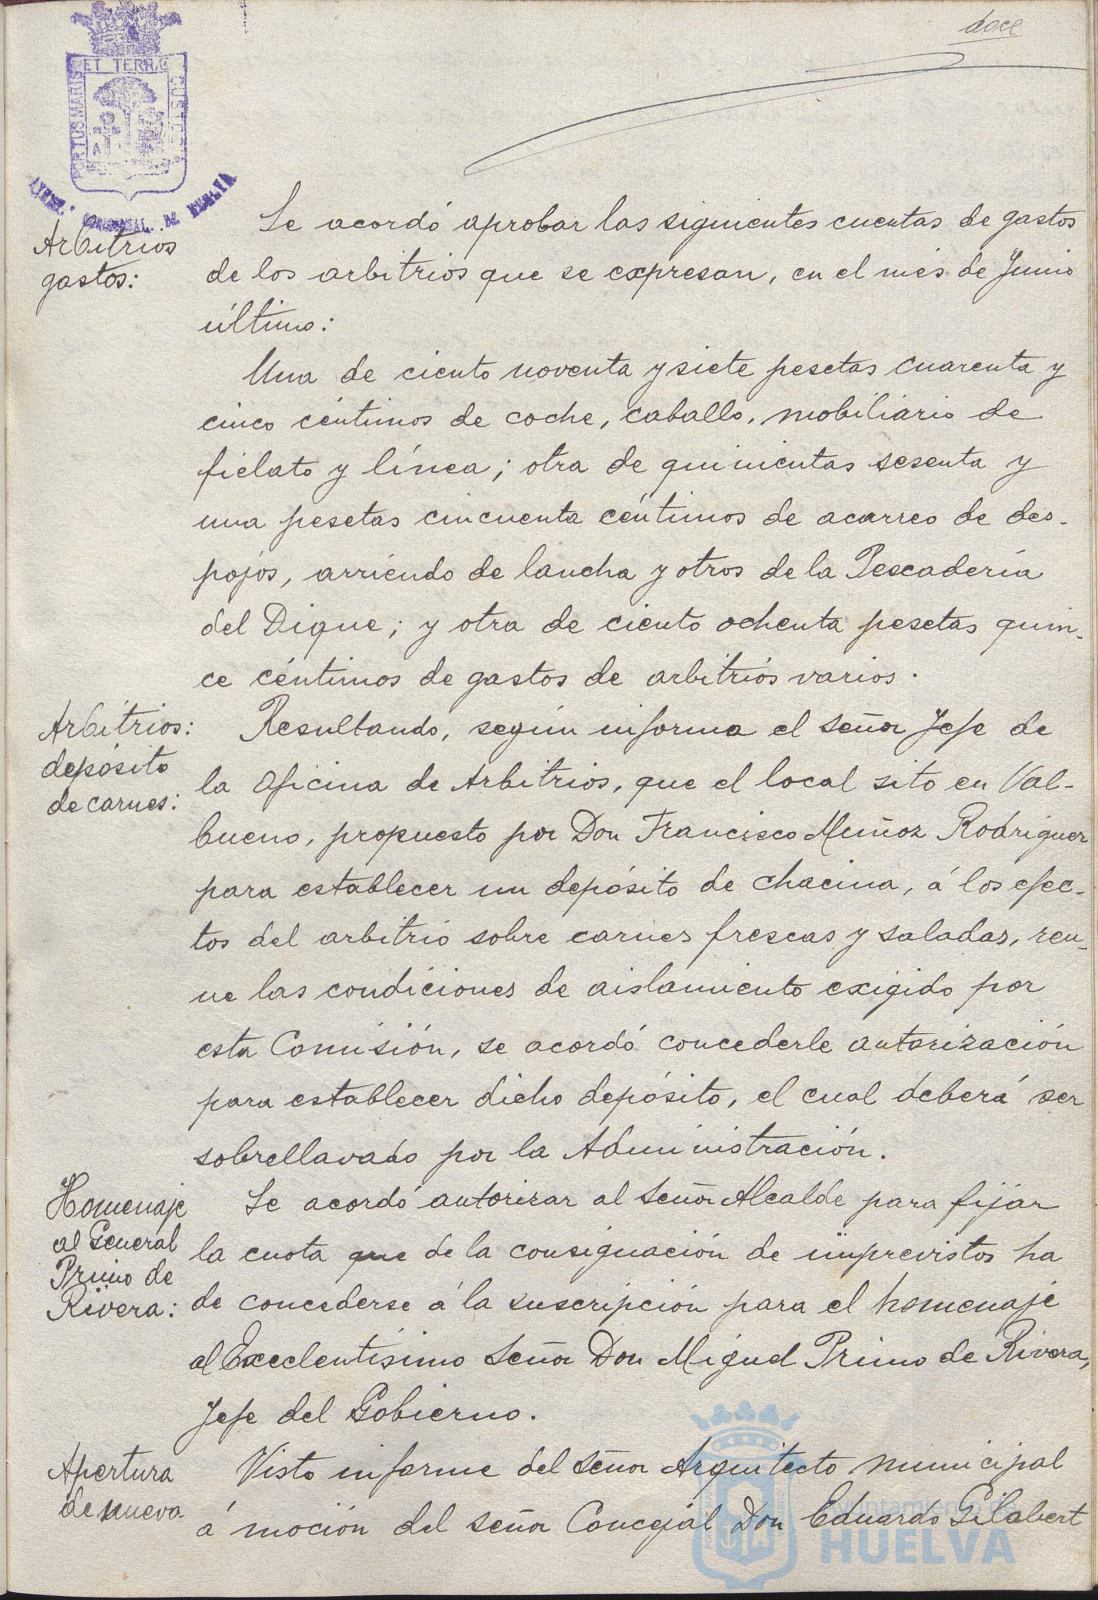 doce
ET TERRAE
PORTUS MARIS
CUSTODIA
AYUNT. CONSTNAL. DE HUELVA
Arbitrios
gastos:
Se acordó aprobar las siguientes cuentas de gastos
de los arbitrios que se expresan, en el mes de Junio
último:
Una de ciento noventa y siete pesetas cuarenta y
cinco céntimos de coche, caballo, mobiliario de
fielato y línea; otra de quinientas sesenta y
una pesetas cincuenta céntimos de acarreo de des-
pojos, arriendo de lancha y otros de la Pescadería
del Dique; y otra de ciento ochenta pesetas quin-
ce céntimos de gastos de arbitrios varios.
Arbitrios:
depósito
de carnes:
Resultando, según informa el señor Jefe de
la Oficina de Arbitrios, que el local sito en Val-
bueno, propuesto por Don Francisco Muñoz Rodriguez
para establecer un depósito de chacina, á los efec-
tos del arbitrio sobre carnes frescas y saladas, reu-
ne las condiciones de aislamiento exigido por
esta Comisión, se acordó concederle autorización
para establecer dicho depósito, el cual deberá ser
sobrellavado por la Administración.
Homenaje
al General
Primo de
Rivera:
Se acordó autorizar al Señor Alcalde para fijar
la cuota que de la consignación de imprevistos ha
de concederse á la suscripción para el homenaje
al Excelentísimo Señor Don Miguel Primo de Rivera,
Jefe del Gobierno.
Apertura
de nueva
Visto informe del señor Arquitecto municipal
á moción del señor Concejal Don Eduardo Gilabert
Ayuntamiento de
HUELVA